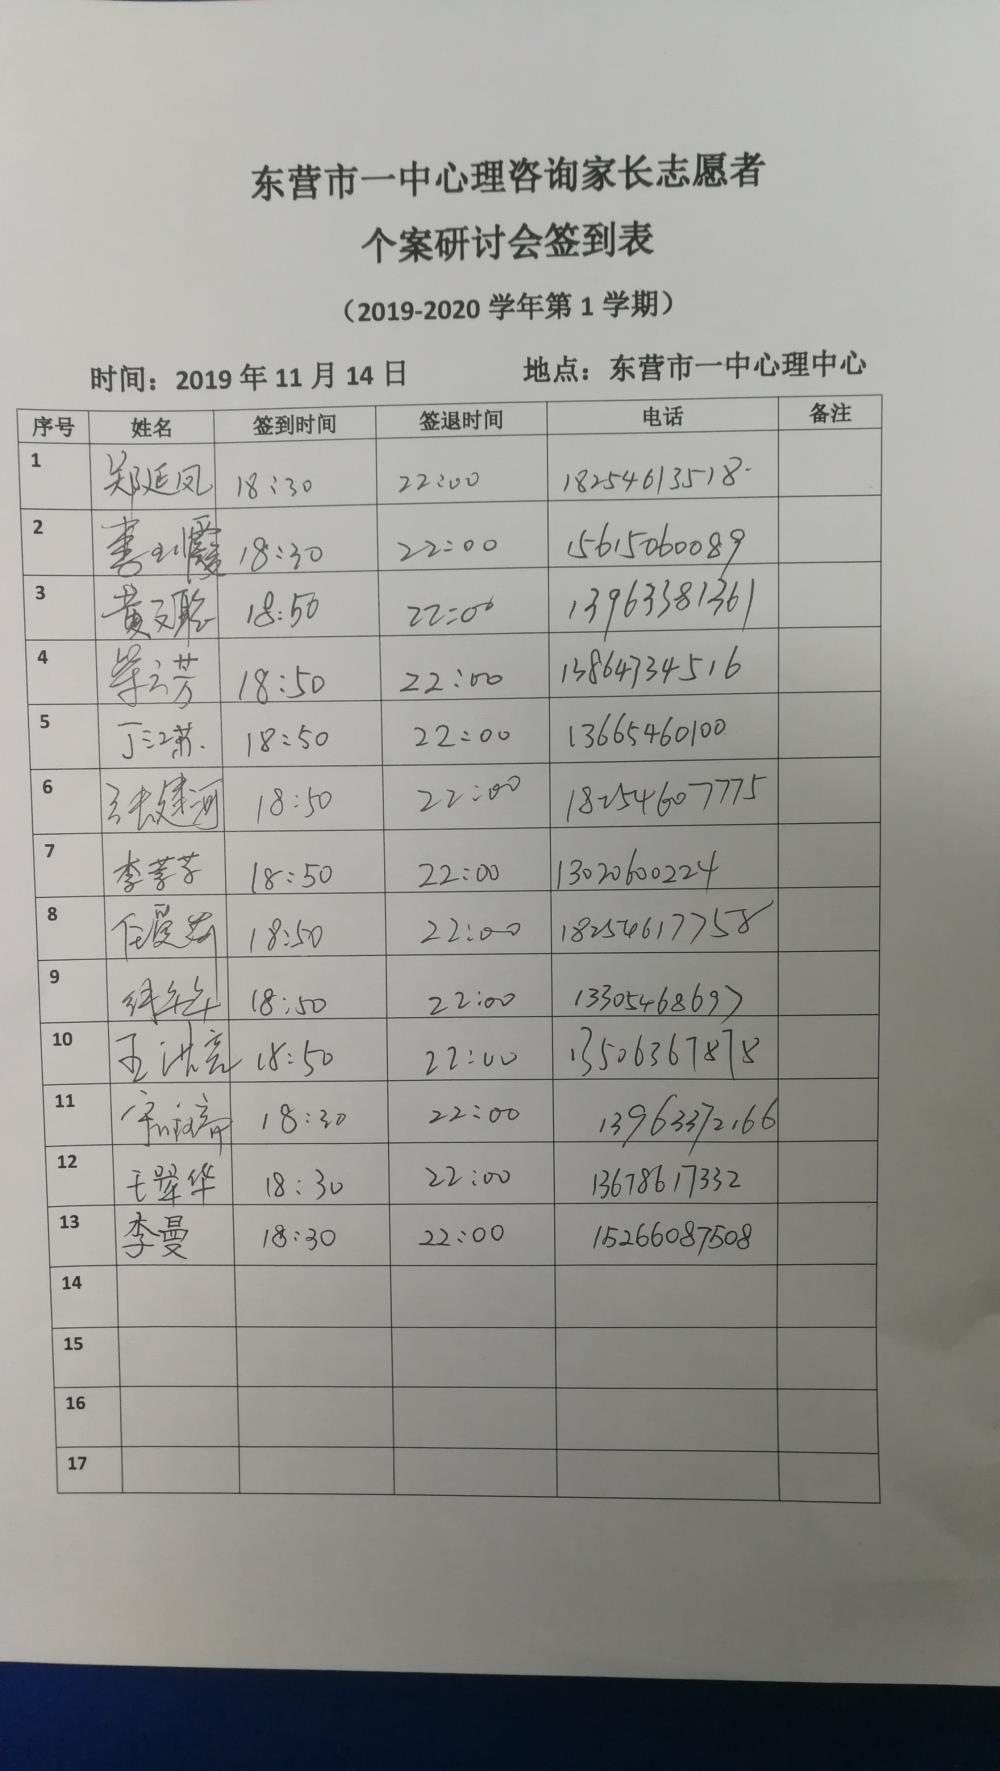 东营市一中心理咨询家长志愿者
个案研讨会签到表
（2019-2020 学年第 1 学期）
时间：2019 年 11 月 14 日 地点：东营市一中心理中心
序号 姓名 签到时间 签退时间 电话 备注
1 郑延凤 18:30 22:00 18254613518
2 18:30 22:00 15615060089
3 黄文聪 18:50 22:00 13963381361
4 18:50 22:00 13864734516
5 丁江萍 18:50 22:00 13665460100
6 张建河 18:50 22:00 18254607775
7 李 18:50 22:00 13020600224
8 任爱 18:50 22:00 18254617758
9 18:50 22:00 13305468697
10 王洪亮 18:50 22:00 13506367878
11 18:30 22:00 13963372166
12 王翠华 18:30 22:00 13678617332
13 李曼 18:30 22:00 15266087508
14
15
16
17